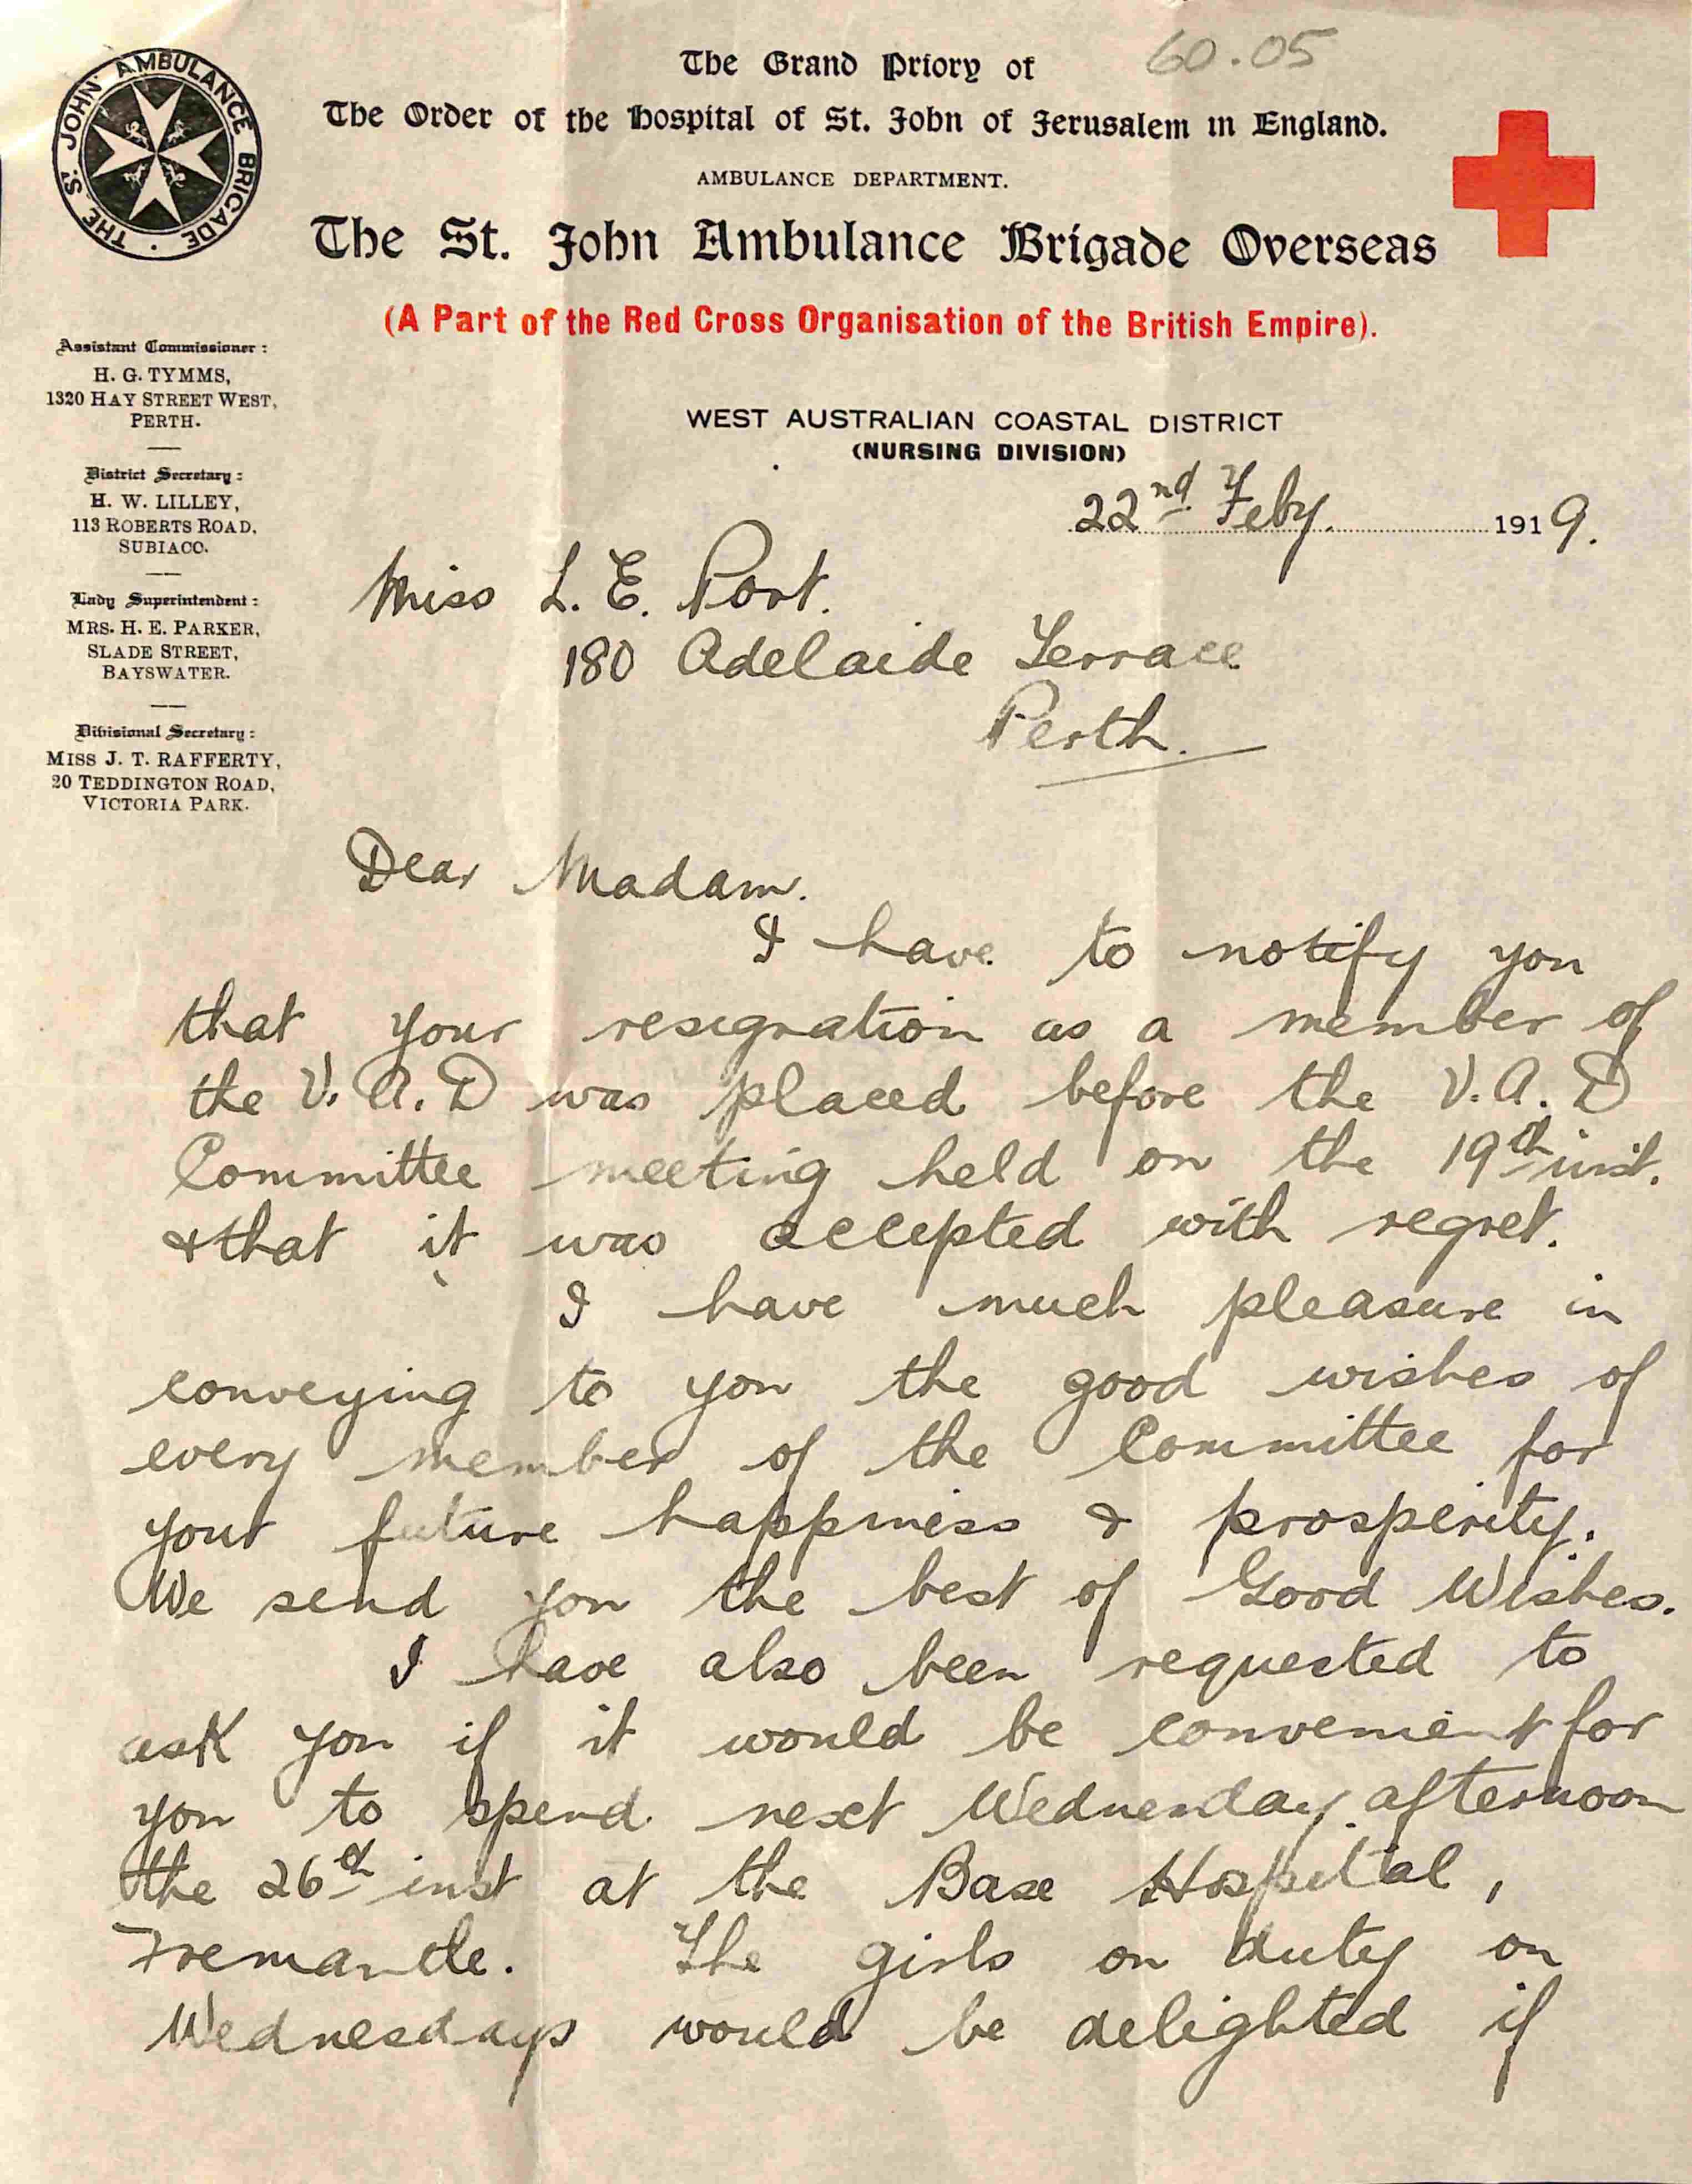 60.05
THE ST. JOHN AMBULANCE BRIGADE
The Grand Priory of
The Order of the Hospital of St. John of Jerusalem in England.
AMBULANCE DEPARTMENT.
The St. John Ambulance Brigade Overseas
(A Part of the Red Cross Organisation of the British Empire).
Assistant Commissioner:
H. G. TYMMS,
1320 HAY STREET WEST,
PERTH.
District Secretary:
H. W. LILLEY,
113 ROBERTS ROAD,
SUBIACO.
Lady Superintendent:
MRS. H. E. PARKER,
SLADE STREET,
BAYSWATER.
Divisional Secretary:
MISS J. T. RAFFERTY,
20 TEDDINGTON ROAD,
VICTORIA PARK.
WEST AUSTRALIAN COASTAL DISTRICT
(NURSING DIVISION)
22nd Feby. 1919.
Miss L. E. Port.
180 Adelaide Terrace
Perth.
Dear Madam.
I have to notify you
that your resignation as a member of
the V.A.D was placed before the V.A.D
Committee meeting held on the 19th inst.
& that it was accepted with regret.
I have much pleasure in
conveying to you the good wishes of
every member of the Committee for
your future happiness & prosperity.
We send you the best of Good Wishes.
I have also been requested to
ask you if it would be convenient for
you to spend next Wednesday afternoon
the 26th inst at the Base Hospital,
Fremantle. The girls on duty on
Wednesdays would be delighted if